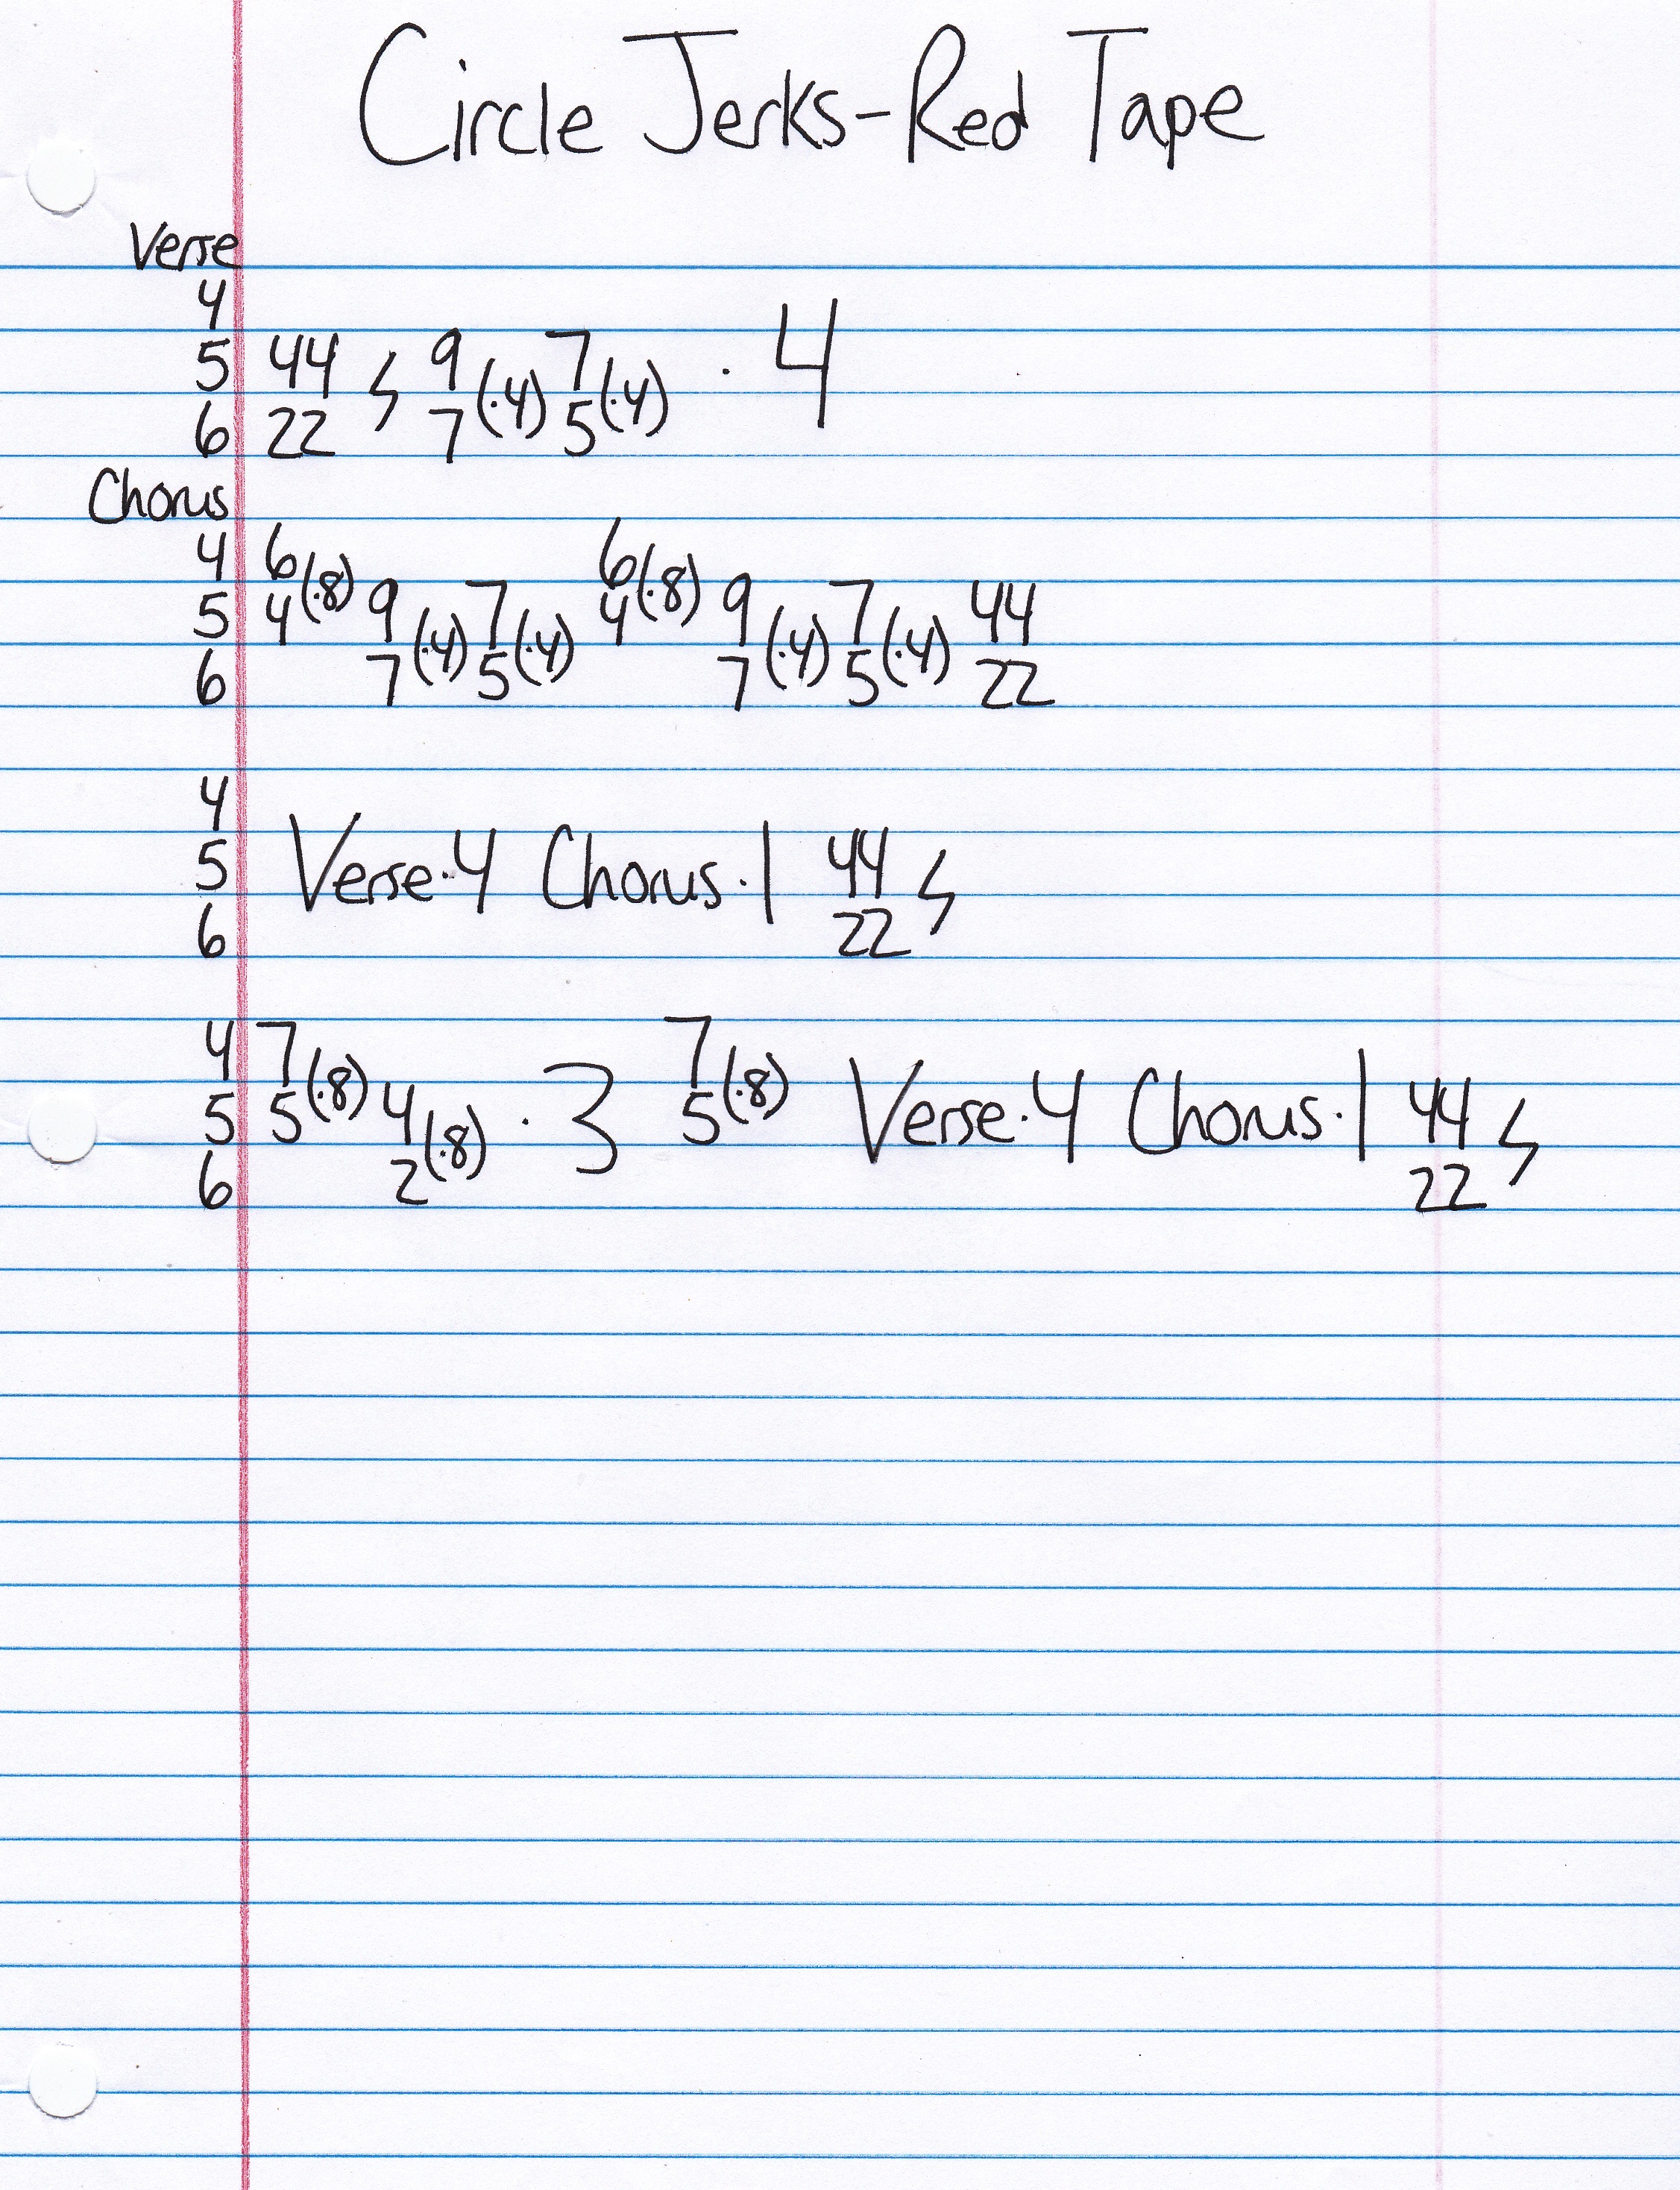 Circle Jerks-Red Tape
Verse
4
5 44 ϟ 9 7 · 4
6 22 7 (·4) 5 (·4)
Chorus
4 6 6
5 4 (·8) 9 7 4 (·8) 9 7 44
6 7 (·4) 5 (·4) 7 (·4) 5 (·4) 22
4
5 Verse·4 Chorus·1 44 ϟ
6 22
4 7 7
5 5 (·8) 4 · 3 5 (·8) Verse·4 Chorus·1 44 ϟ
6 2 (·8) 22